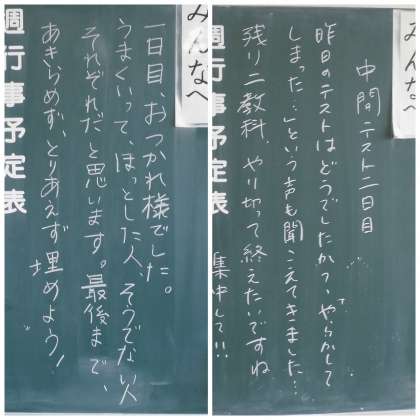 みんなへ
一日目、おつかれ様でした。
うまくいって、ほっとした人、そうでない人
それぞれだと思います。最後まで、
あきらめず、とりあえず埋めよう!
週行事予定表
みんなへ
中間テスト二日目
昨日のテストはどうでしたか?、やらかして
しまった…」という声も聞こえてきました…
残り二教科、やり切って終えたいですね
集中して!!
週行事予定表